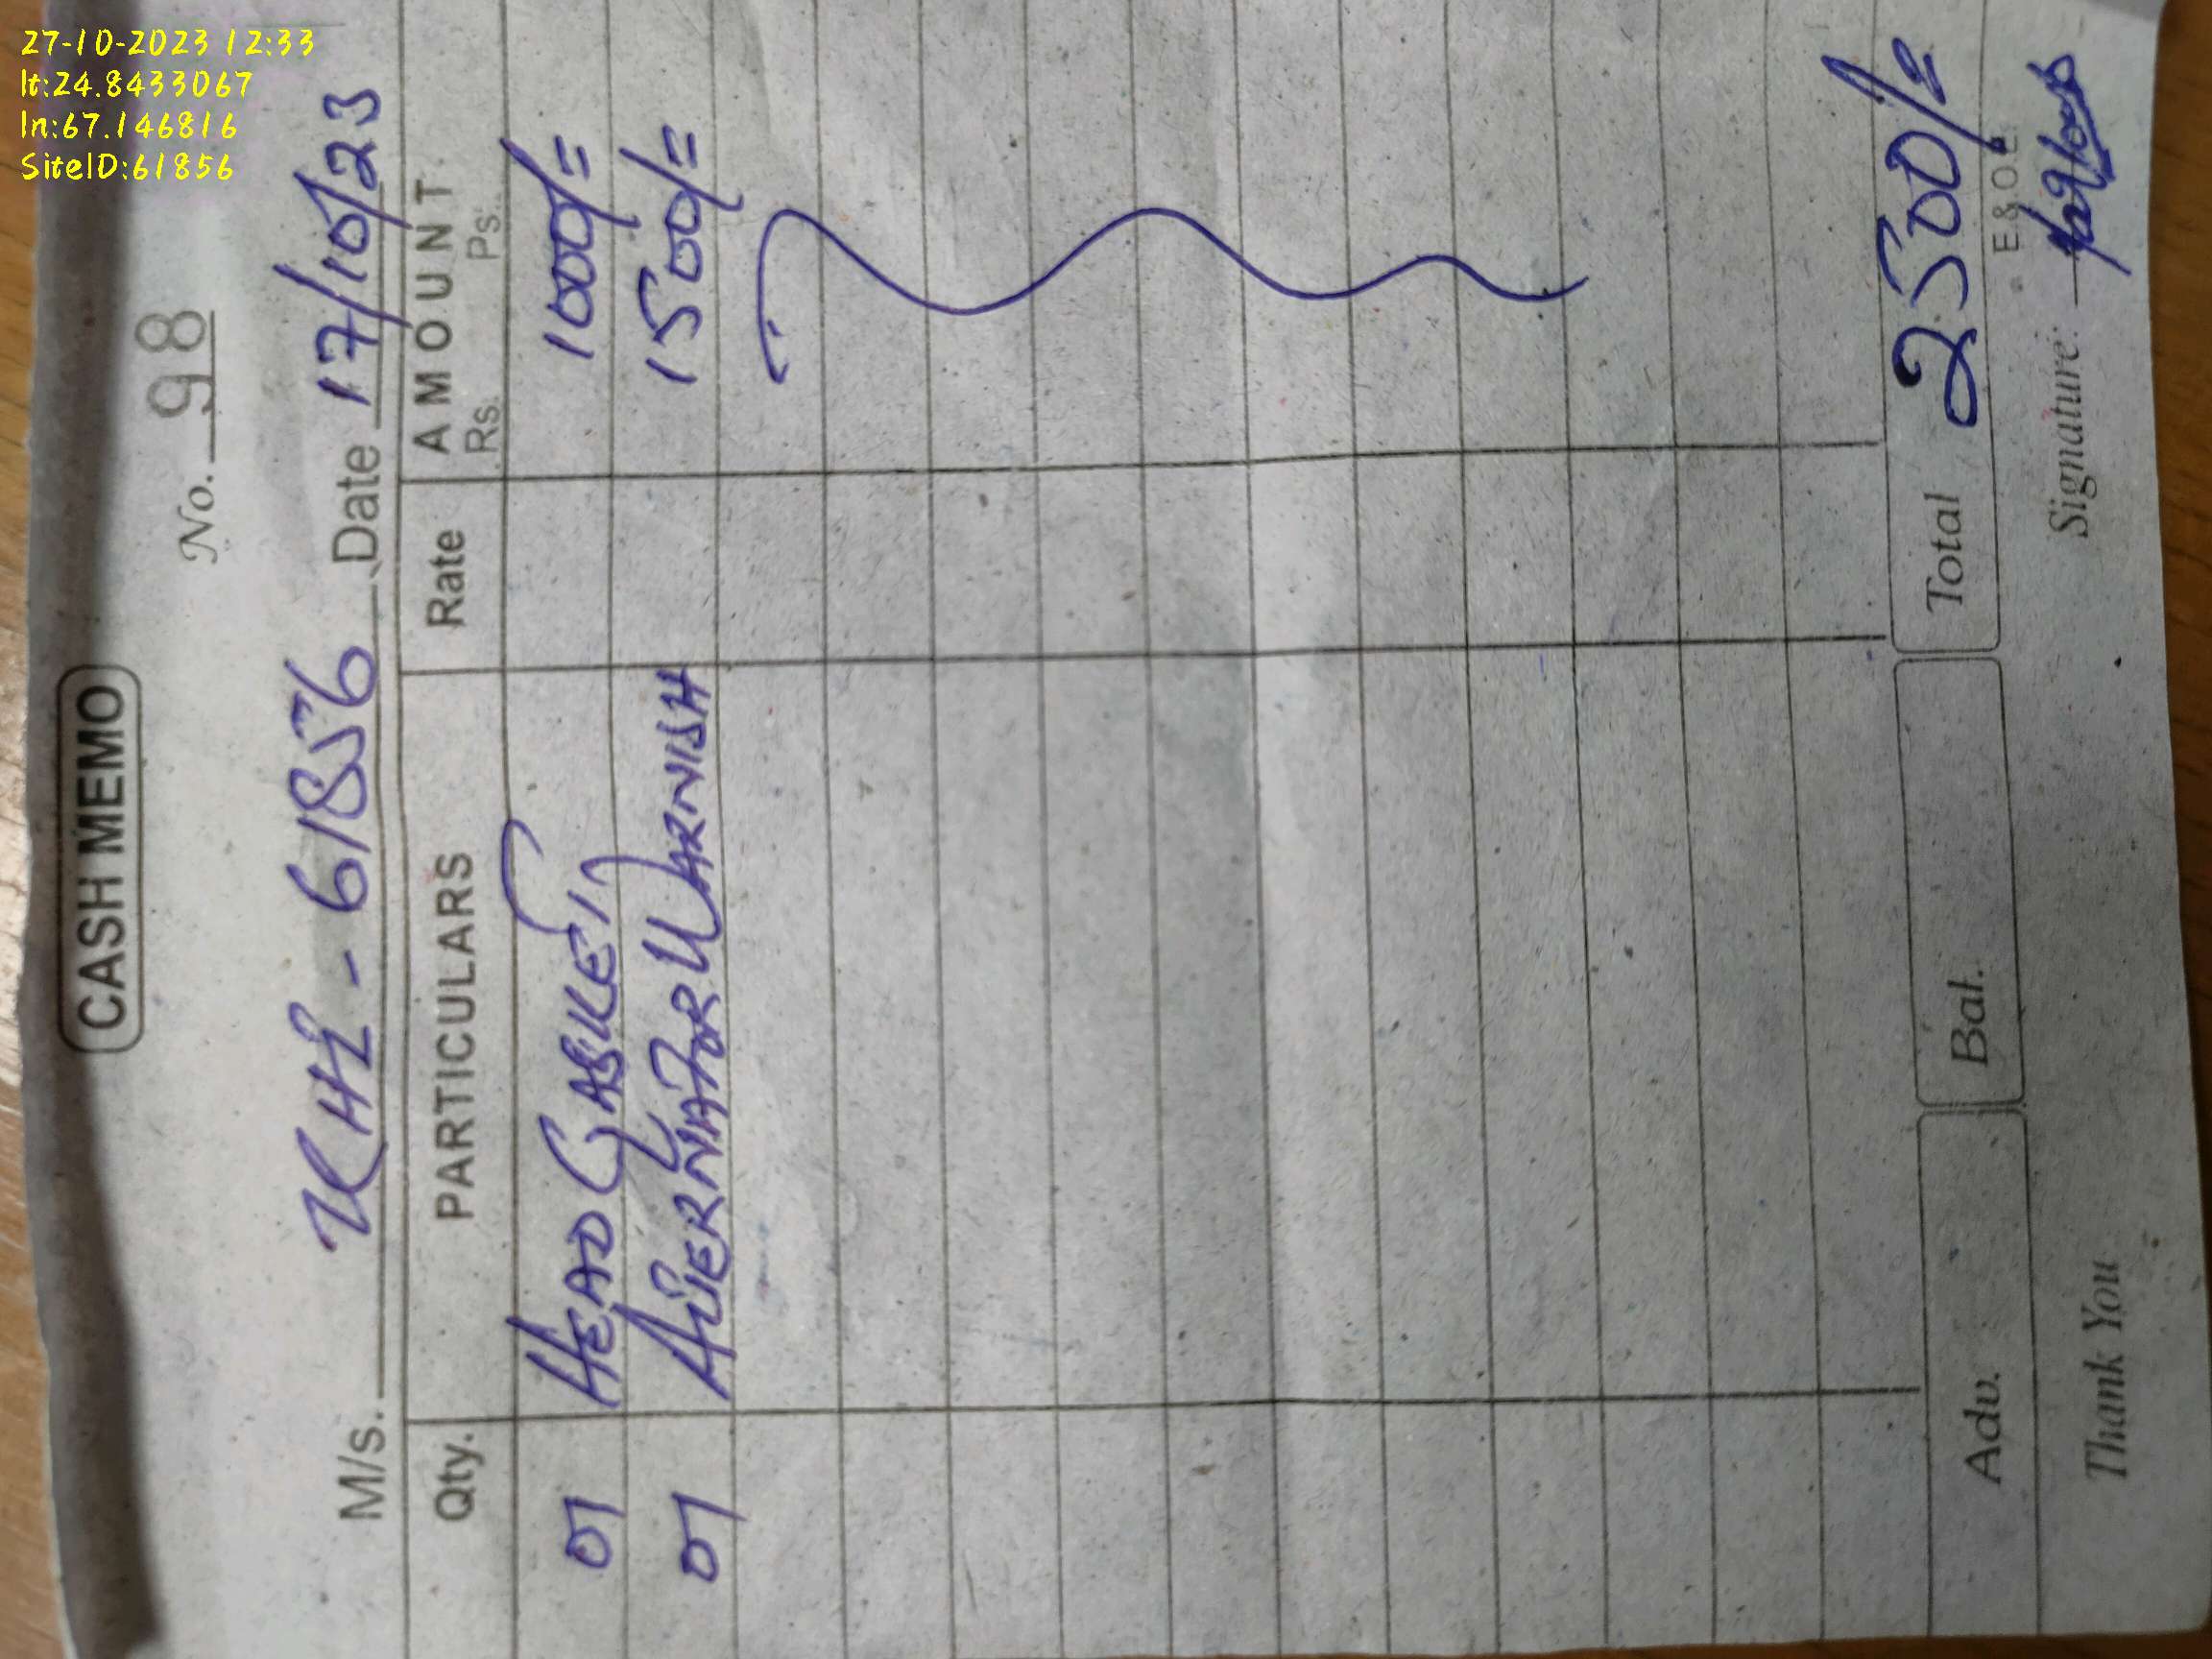 27-10-2023 12:33
lt:24.8433067
ln:67.146816
SiteID:61856
CASH MEMO
No. 98
M/s. KHI - 61856 Date 17/10/23
Qty. PARTICULARS Rate AMOUNT
Rs. Ps.
01 HEAD GASKET 1000/=
01 ALTERNATOR WARNISH 1500/=
Adv. Bal. Total 2500/=
E.&.O.E.
Thank You Signature: